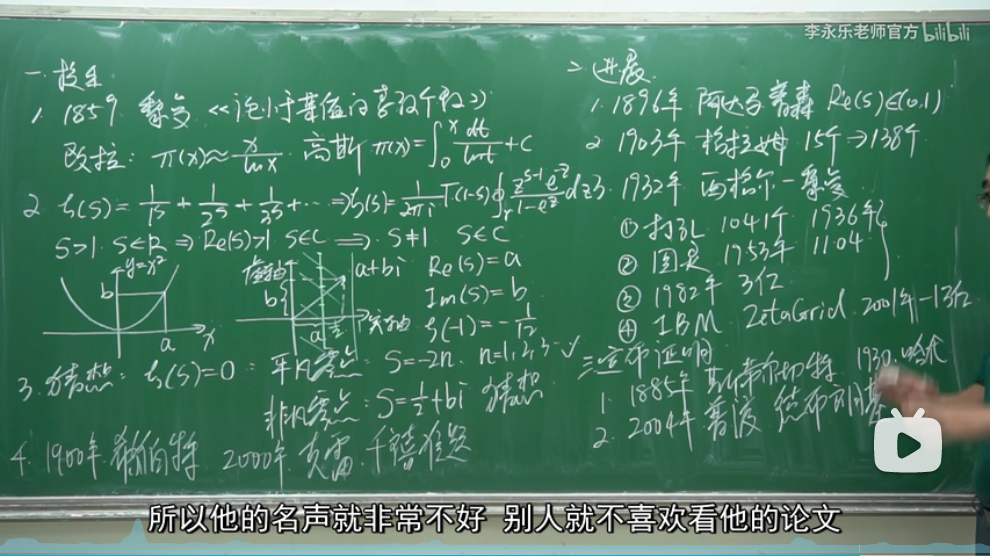 李永乐老师官方 bilibili
一. 提出
1. 1859 黎曼 《论小于某值的素数个数》
欧拉: π(x)≈x/lnx 高斯 π(x)=∫₀ˣ dt/lnt + C
2. ζ(s)= 1/1ˢ + 1/2ˢ + 1/3ˢ + ⋯ ⇒ ζ(s)= 1/2πi Γ(1-s)∮ zˢ⁻¹e⁻ᶻ/1-e⁻ᶻ dz
S>1 S∈R ⇒ Re(s)>1 S∈C ⇒ S≠1 S∈C
y=x²
b
a
x
虚轴
b
a
1/2
实轴
a+bi
Re(s)=a
Im(s)=b
ζ(-1)=-1/12
3. 猜想: ζ(s)=0 平凡零点: S=-2n. n=1,2,3⋯√
非凡零点: S=1/2+bi 猜想
4. 1900年.希尔伯特 2000年.克雷.千禧难题
二. 进展
1. 1896年 阿达马 普森 Re(s)∈(0,1)
2 1903年 格拉姆 15个→138个
3. 1932年 西格尔-黎曼
① 打孔 1041个 1936年
② 图灵 1953年 1104
③ 1982年 3亿
④ IBM ZetaGrid. 2001年-13亿
三 宣布证明
1. 1885年 斯蒂尔切特 1930.哈代
2. 2004年 普渡 德布朗基
所以他的名声就非常不好 别人就不喜欢看他的论文